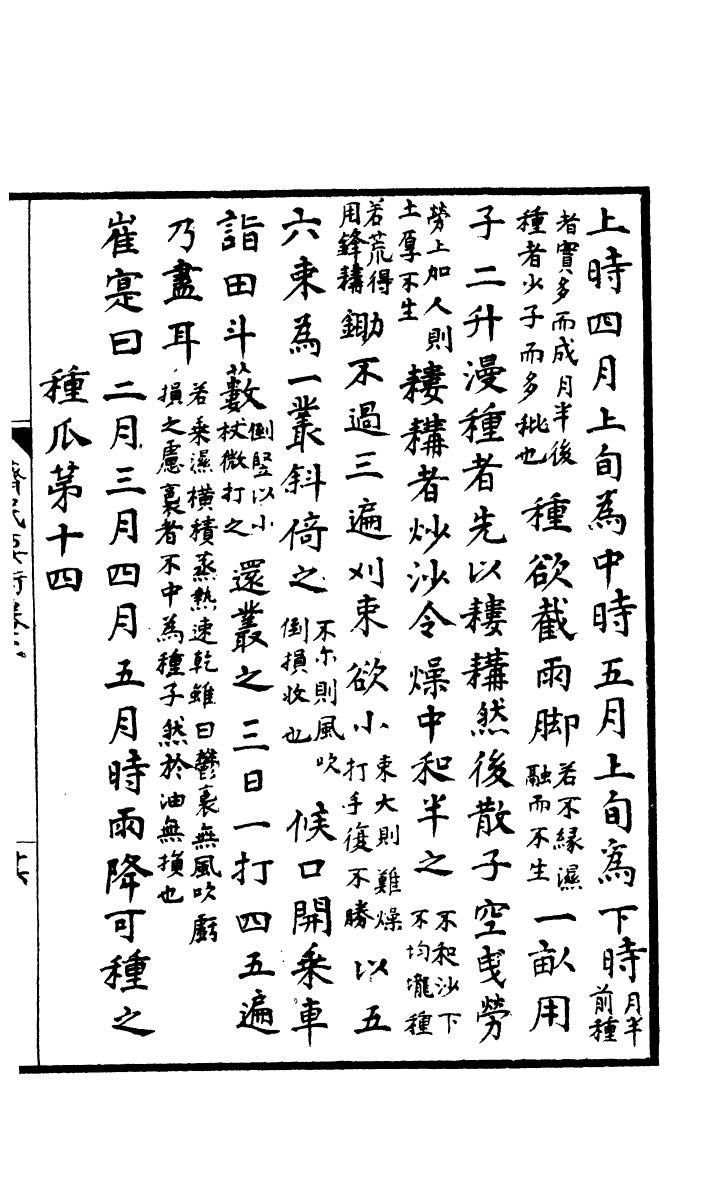 上時四月上旬為中時五月上旬為下時月半前種
者實多而成月半後種者少子而多秕也種欲截雨脚若不緣濕融而不生一畝用
子二升漫種者先以耬耩然後散子空曳勞
勞上加人則土厚不生耬耩者炒沙令燥中和半之不和沙下不均壠種
若荒得用鋒耩鋤不過三遍刈束欲小束大則難燥打手復不勝以五
六束為一叢斜倚之不尒則風吹倒損收也候口開乗車
詣田斗藪倒竪以小杖微打之還叢之三日一打四五遍
乃盡耳若乗濕橫積蒸熱速乾雖曰鬱裛無風吹虧損之慮裛者不中為種子然於油無損也
崔寔曰二月三月四月五月時雨降可種之
種瓜第十四
齊民要術卷二